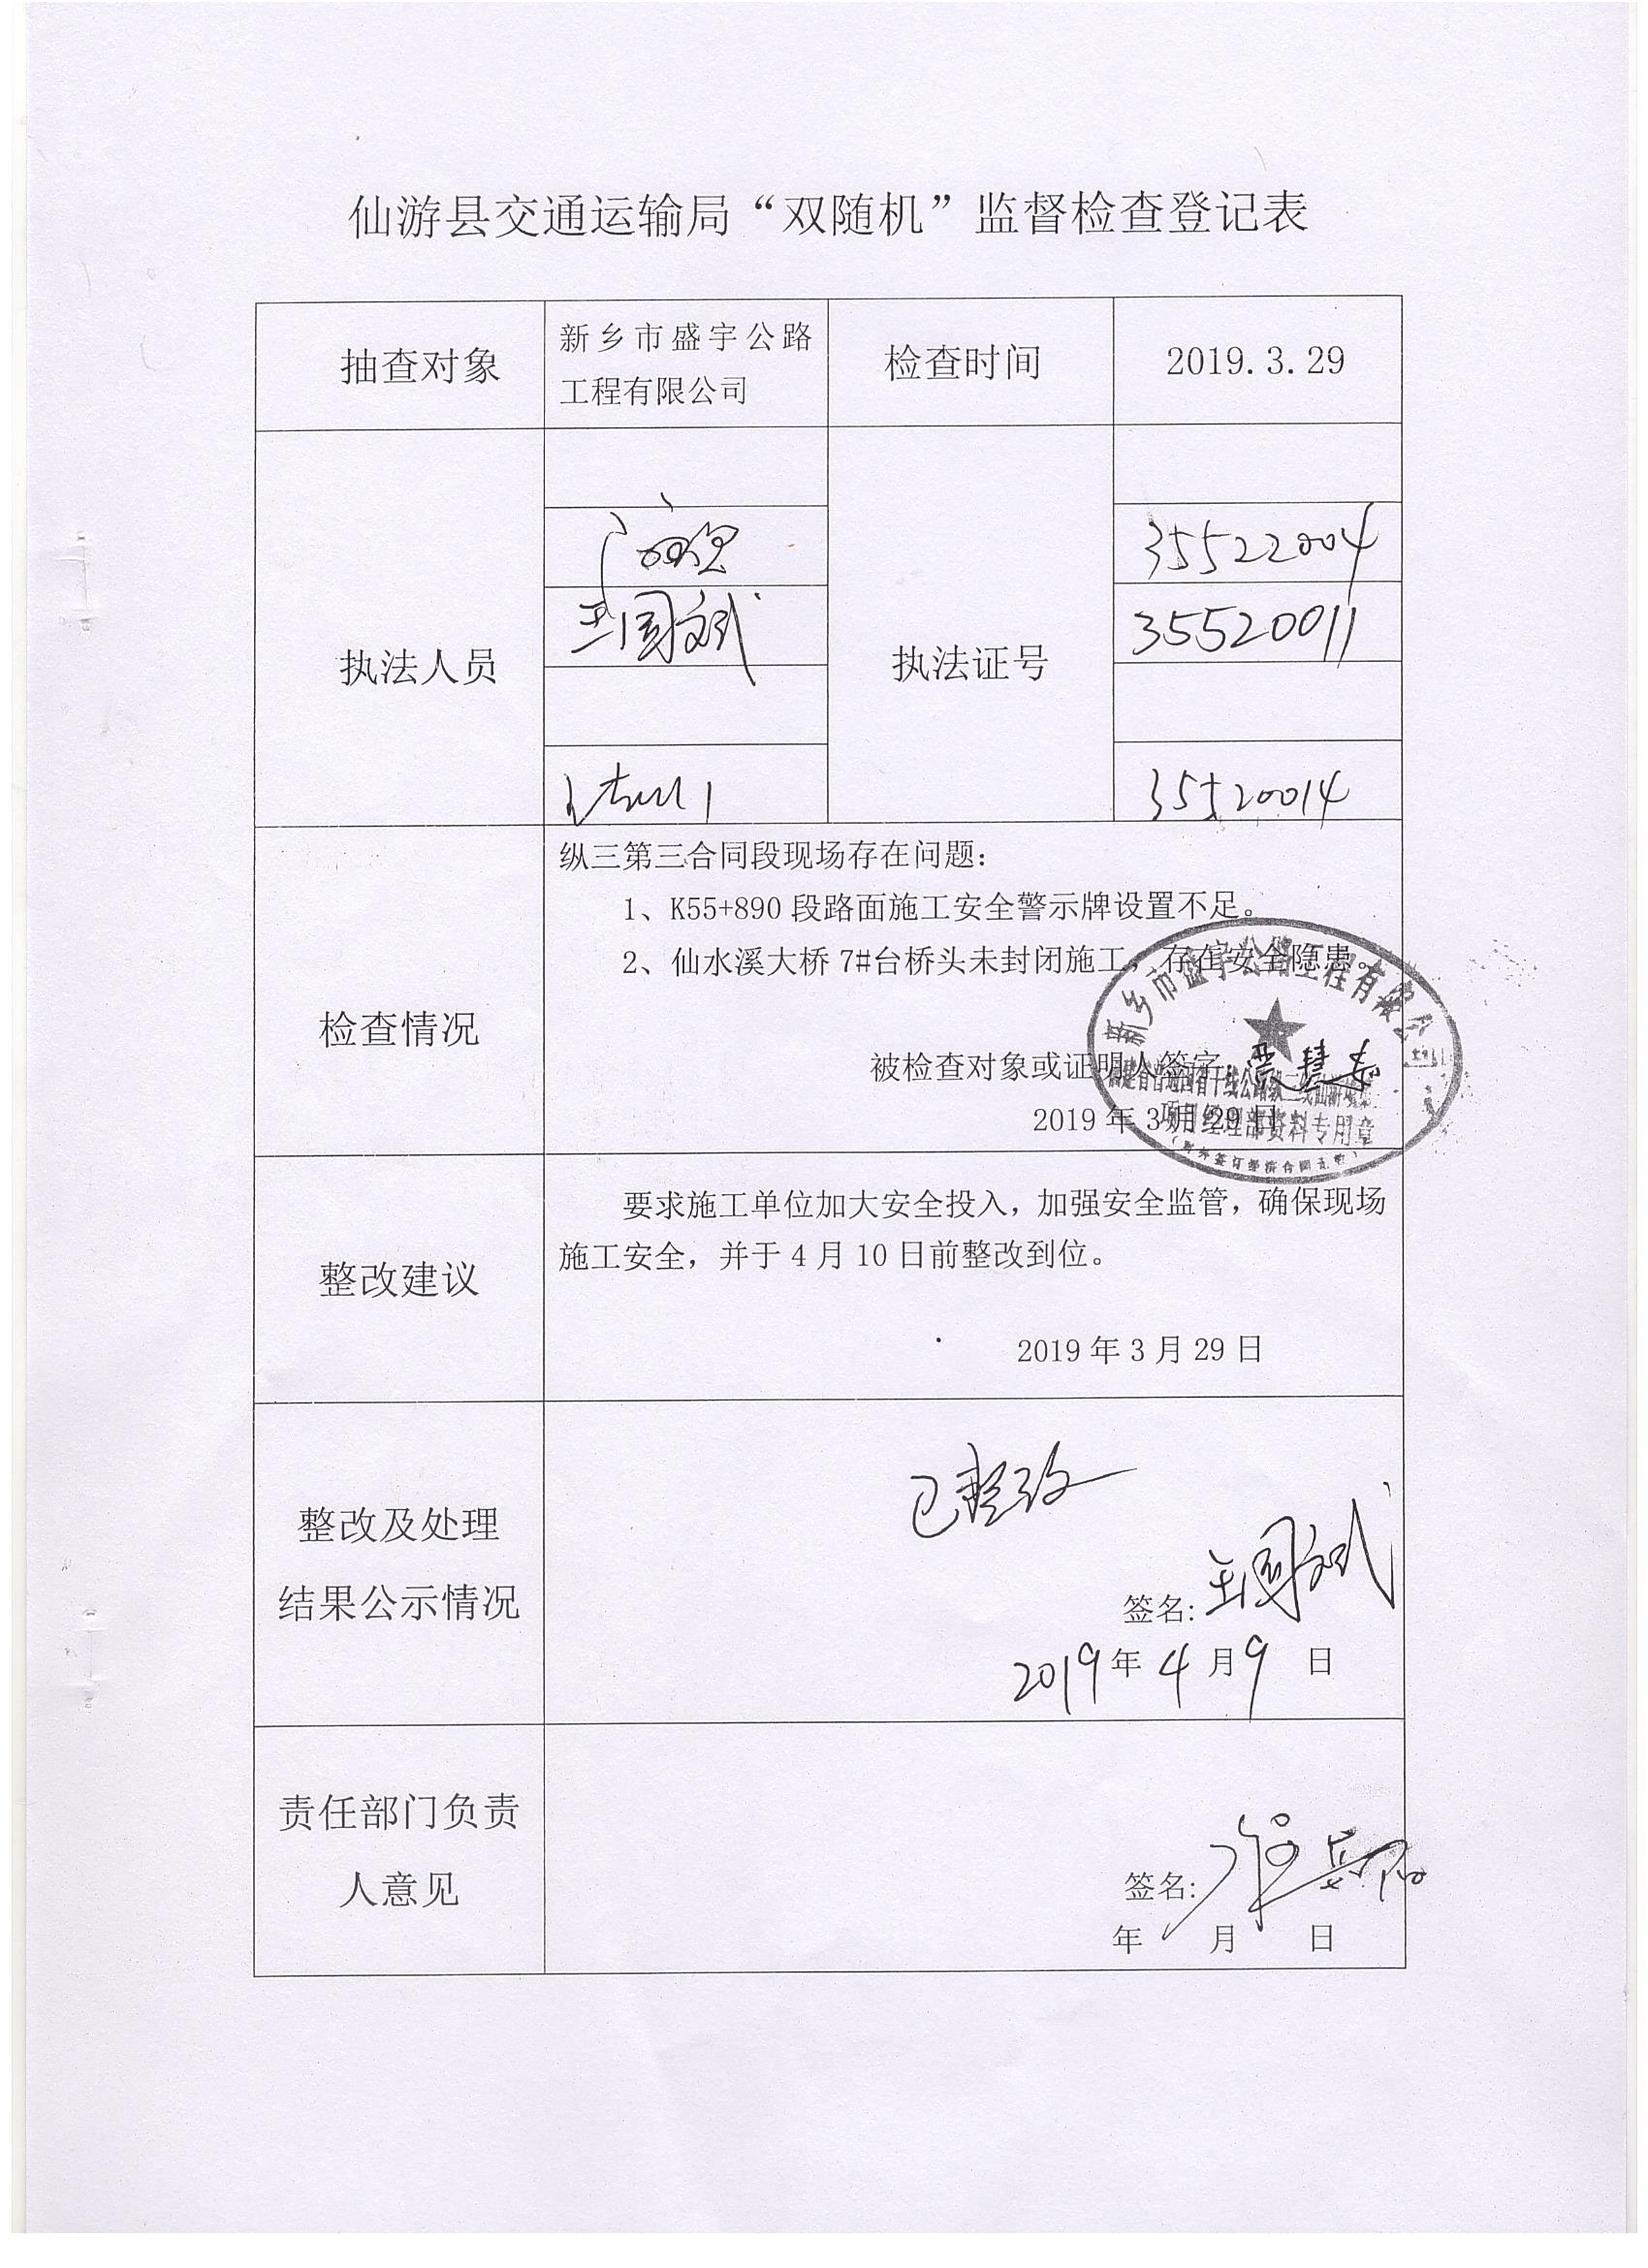 仙游县交通运输局“双随机”监督检查登记表
抽查对象
新乡市盛宇公路
工程有限公司
检查时间
2019.3.29
执法人员
王国斌
执法证号
35522004
35520011
35520014
检查情况
纵三第三合同段现场存在问题：
1、K55+890段路面施工安全警示牌设置不足。
2、仙水溪大桥7#台桥头未封闭施工，存在安全隐患。
被检查对象或证明人签字：
2019年3月29日
新乡市盛宇公路工程有限公司
项目经理部资料专用章
整改建议
要求施工单位加大安全投入，加强安全监管，确保现场
施工安全，并于4月10日前整改到位。
2019年3月29日
整改及处理
结果公示情况
已整改
签名：王国斌
2019年4月9日
责任部门负责
人意见
签名：
年 月 日